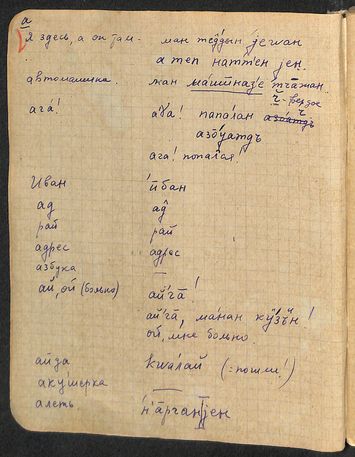 а
Я здесь, а он там – ман теддын јеган
а теп наттен јен.
автомашина. жан машназ'е тчажан.
ч̆ - твердое
ага! а'ға! попалан
азӧуатдъ
ага! попался!
Иван й̆бан
ад ад
рай рай
адрес адрес
азбука —
ай, ой (больно) ай'га!
ай'га, манан кӱзън!
ой, мне больно.
айда кwалай (= пошли!)
акушерка —
алеть н'арганјен